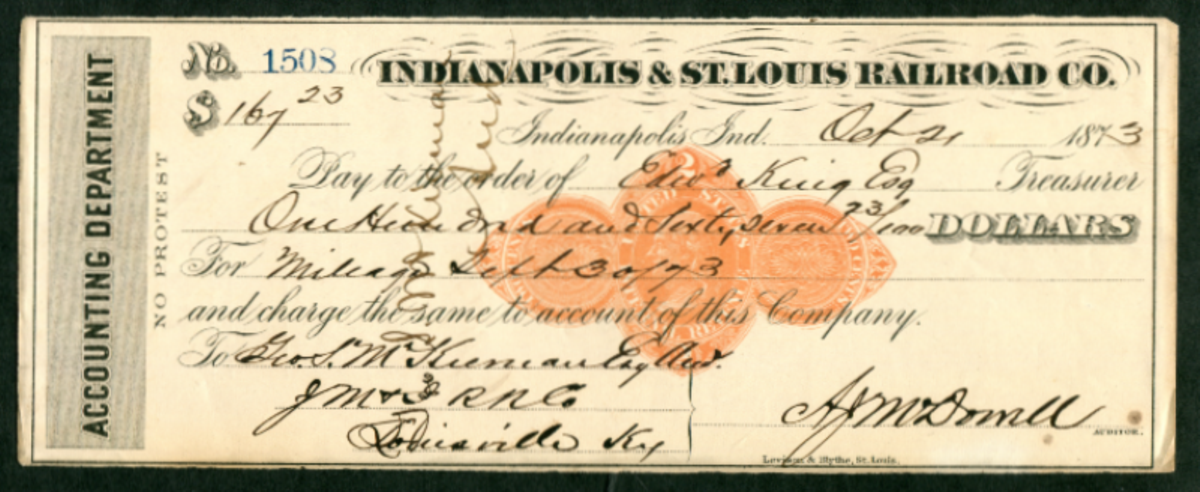 No. 1508
INDIANAPOLIS & ST. LOUIS RAILROAD CO.
$ 167 23
Indianapolis Ind. Oct 21 1873
Pay to the order of Edwd King Esq Treasurer
One Hundred and Sixty seven 23/100 DOLLARS
For Mileage Sept 30/73
and charge the same to account of this Company.
To Geo. S. McKiernan Esq Aud.
J M & I R R Co
Louisville Ky
A J McDowell
AUDITOR.
Levison & Blythe, St. Louis.
ACCOUNTING DEPARTMENT
NO PROTEST